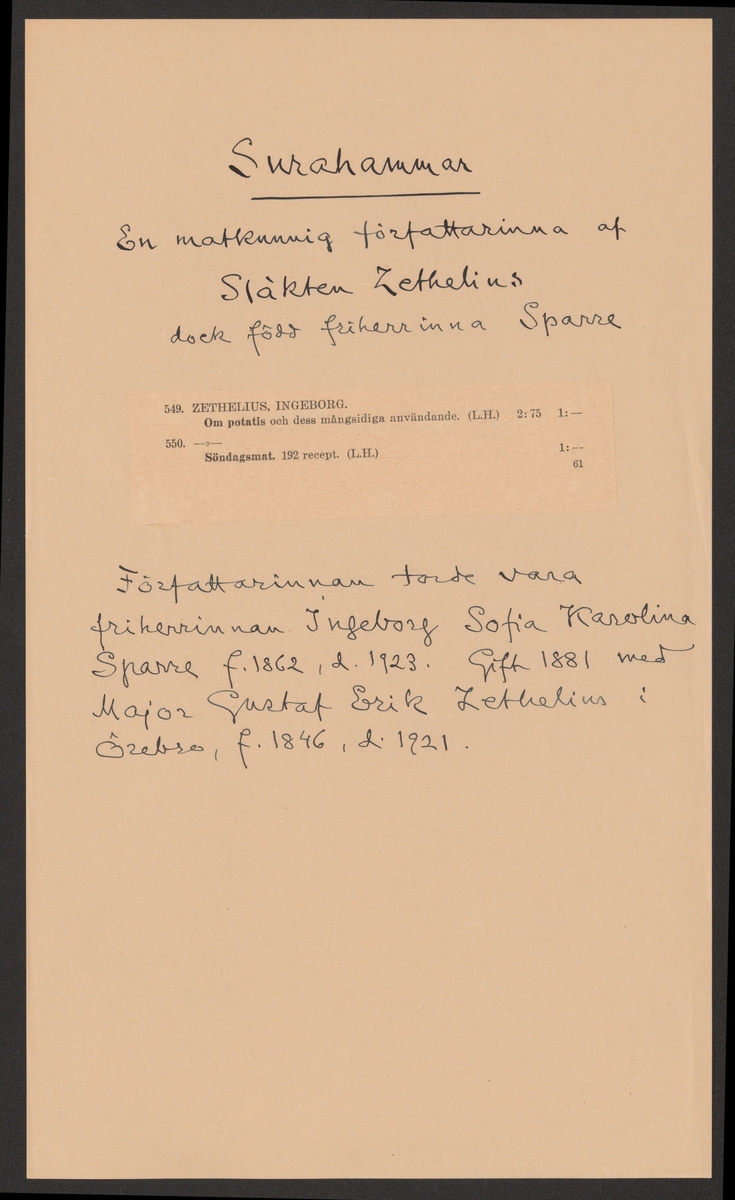 Surahammar
En matkunnig författarinna af
Släkten Zethelius
dock född friherrinna Sparre
549. ZETHELIUS, INGEBORG.
Om potatis och dess mångsidiga användande. (L.H.) 2:75 1:—
550. —»—
Söndagsmat. 192 recept. (L.H.) 1:—
61
Författarinnan torde vara
friherrinnan Ingeborg Sofia Karolina
Sparre f. 1862, d. 1923. Gift 1881 med
Major Gustaf Erik Zethelius i
Örebro, f. 1846, d. 1921.